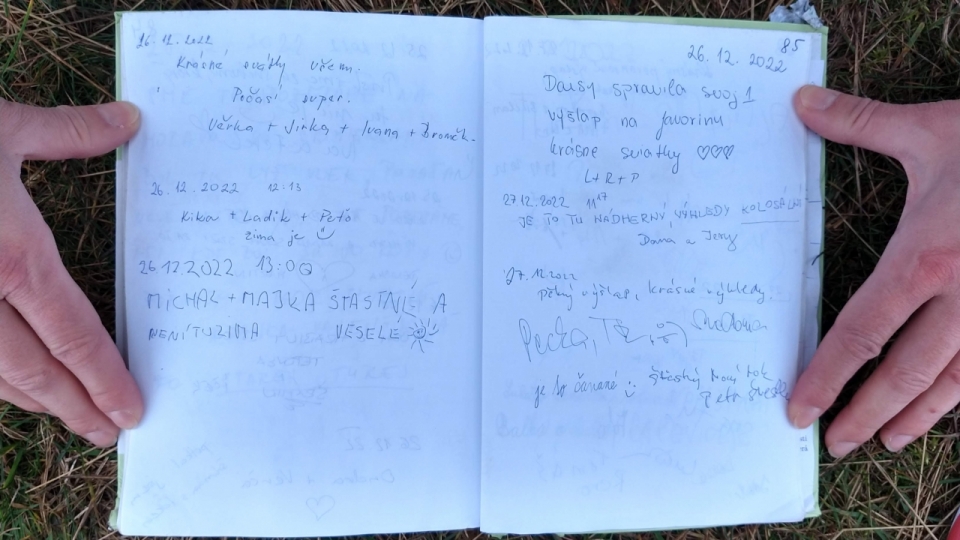 26.12.2022
Krásné svátky všem.
Počasí super.
Věrka + Jirka + Ivana +
26.12.2022 12:13
Kika + Ladik + Peťo
zima je
26.12.2022 13:00
MICHAL + MAJKA ŠTASTNÉ A
NENÍ TU ZIMA VESELE
85
26.12.2022
Daisy spravila svoj 1
výšlap na Javorinu
krásne sviatky ♡♡♡
L+R+P
27.12.2022 11
JE TO TU NÁDHERNÝ VÝHLEDY KOLOSÁLNÍ
Dana a Jerry
27.12.2022
pěkný výšlap, krásné výhledy.
je to
šťastný nový rok
Petr